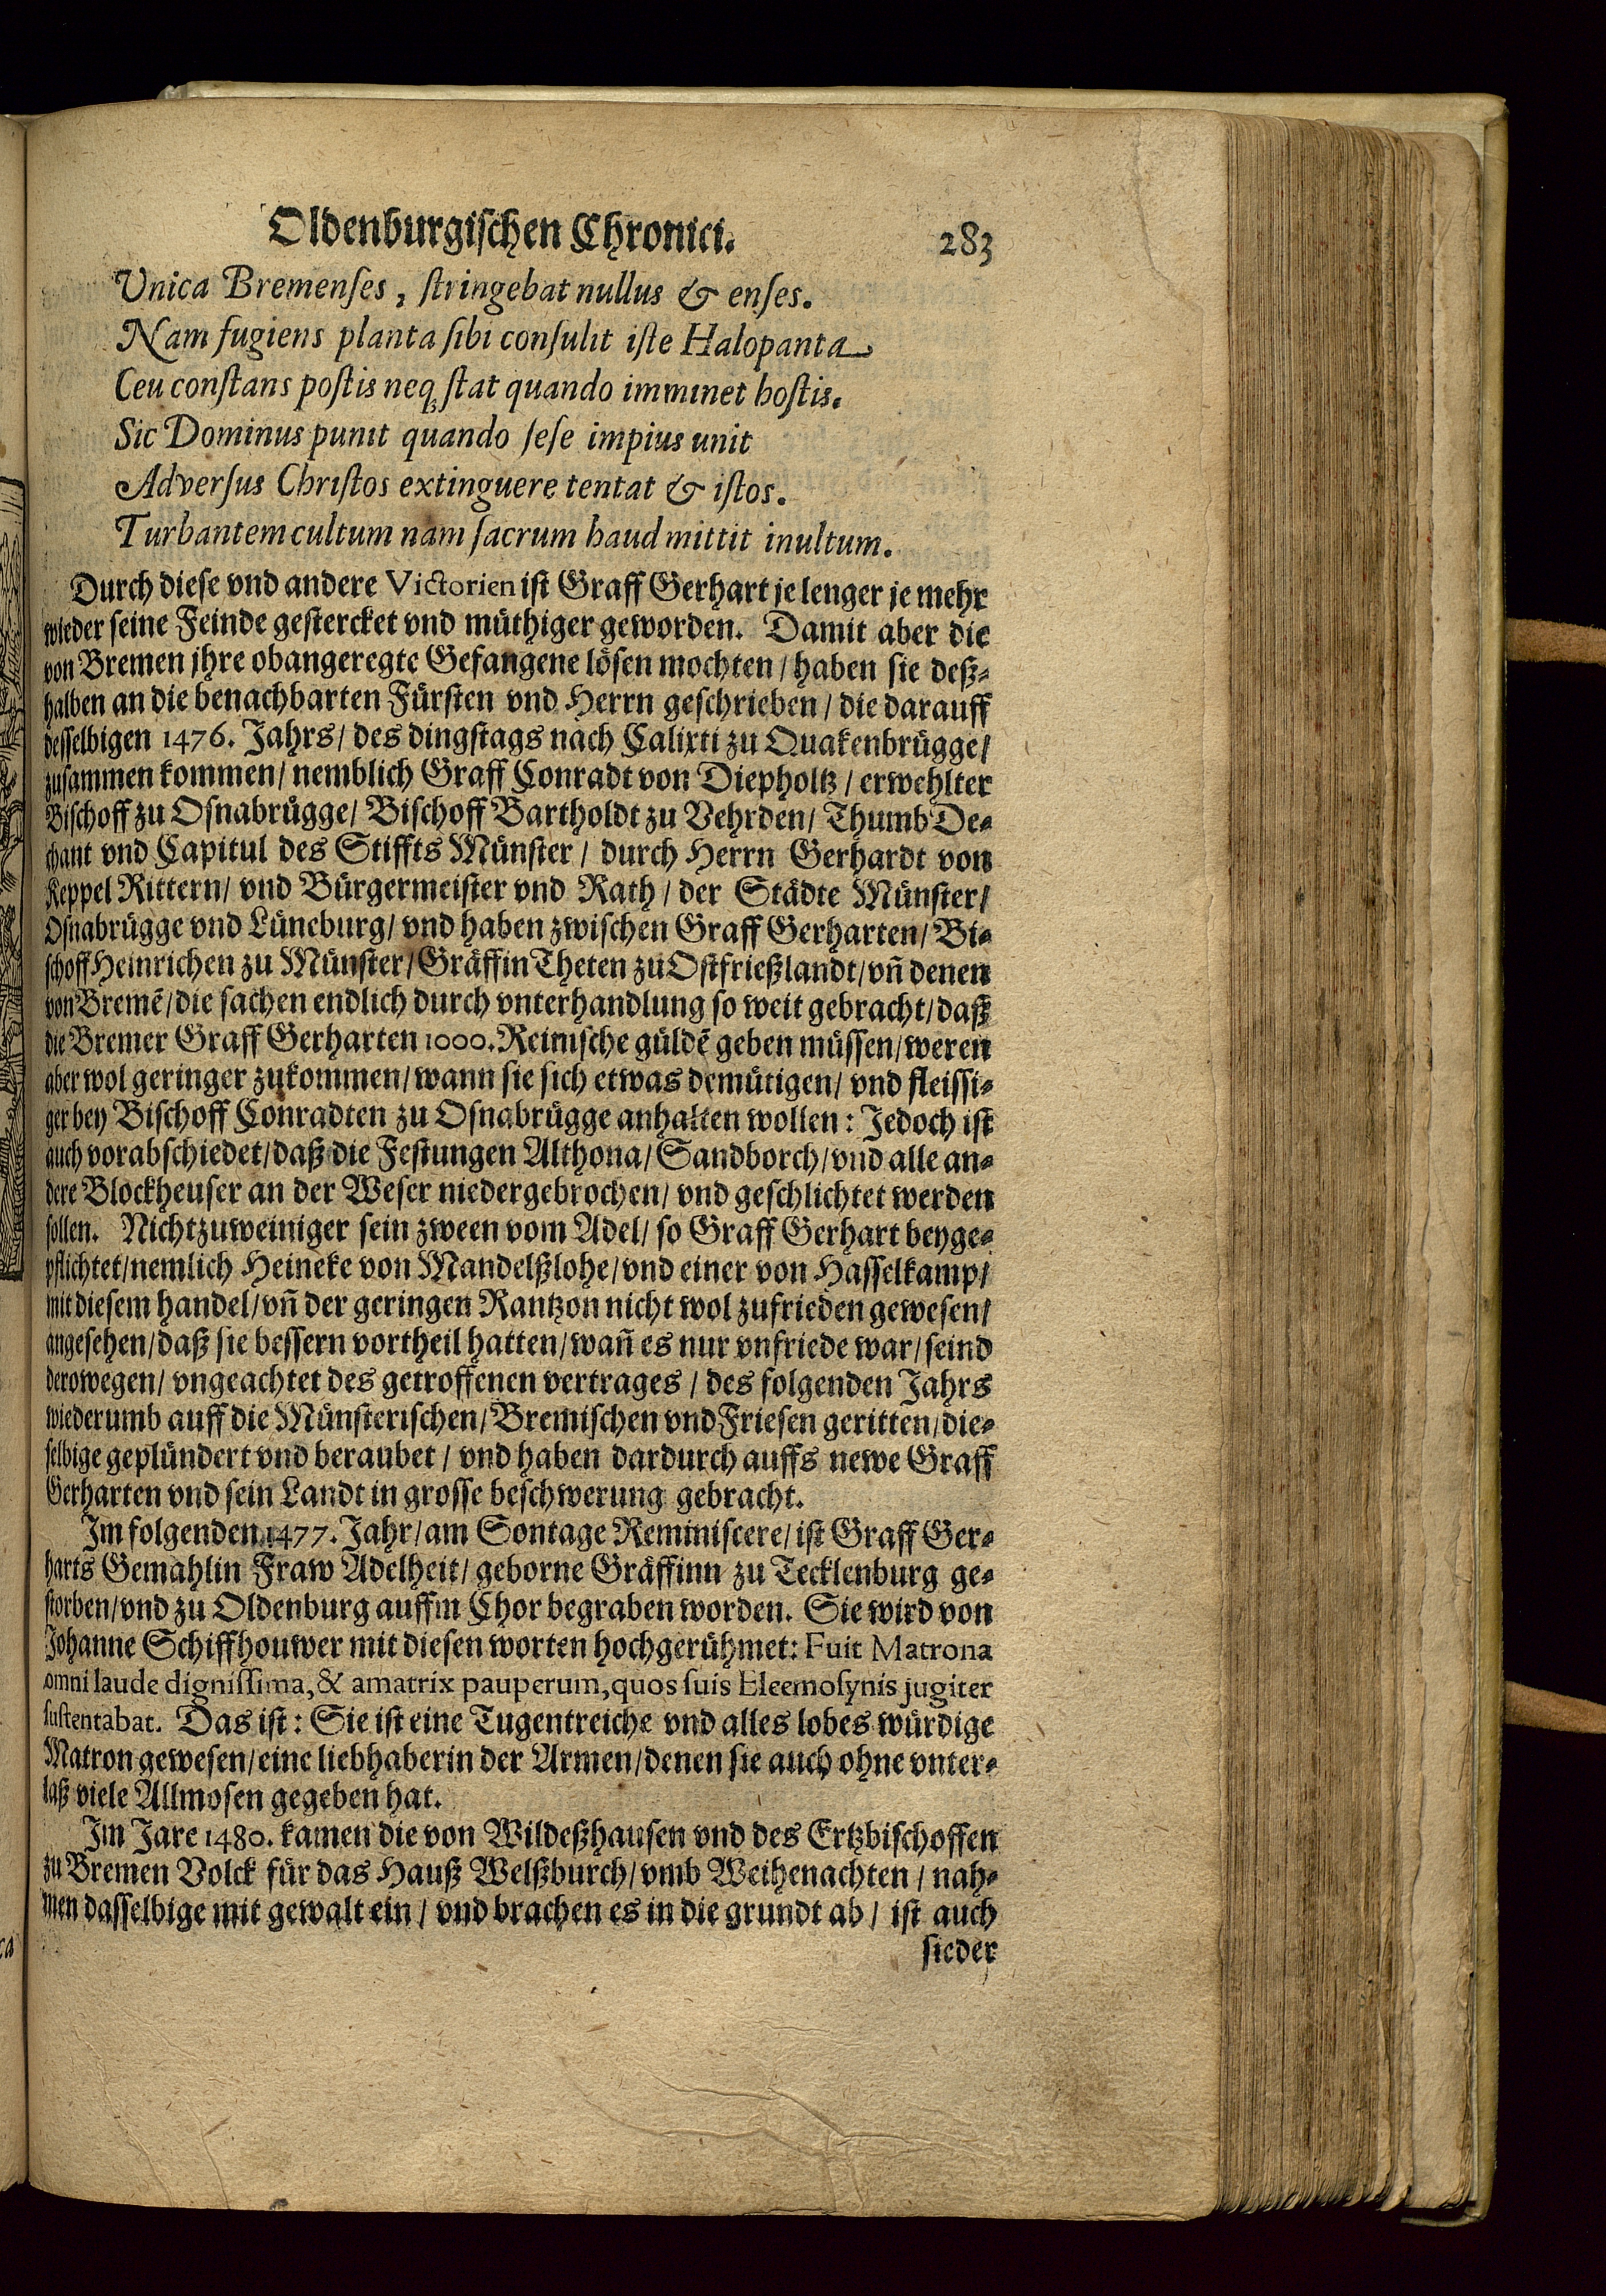 Oldenburgischen Chronici. 283
Unica Bremenses, stringebat nullus & enses.
Nam fugiens planta sibi consulit iste Halopanta
Ceu constans postis neq; stat quando imminet hostis.
Sic Dominus punit quando sese impius unit
Adversus Christos extinguere tentat & istos.
Turbantem cultum nam sacrum haud mittit inultum.
Durch diese vnd andere Victorien ist Graff Gerhart je lenger je mehr
wieder seine Feinde gestercket vnd müthiger geworden. Damit aber die
von Bremen jhre obangeregte Gefangene lösen mochten / haben sie deß-
halben an die benachbarten Fürsten vnd Herrn geschrieben / die darauff
desselbigen 1476. Jahrs / des dingstags nach Calixti zu Quakenbrügge /
zusammen kommen / nemblich Graff Conradt von Diepholtz / erwehlter
Bischoff zu Osnabrügge / Bischoff Bartholdt zu Vehrden / Thumb De-
chant vnd Capitul des Stiffts Münster / durch Herrn Gerhardt von
Keppel Rittern / vnd Bürgermeister vnd Rath / der Städte Münster /
Osnabrügge vnd Lüneburg / vnd haben zwischen Graff Gerharten / Bi-
schoff Heinrichen zu Münster / Gräffin Theten zu Ostfrießlandt / vñ denen
von Bremē / die sachen endlich durch vnterhandlung so weit gebracht / daß
die Bremer Graff Gerharten 1000. Reinische güldē geben müssen / weren
aber wol geringer zukommen / wann sie sich etwas demütigen / vnd fleissi-
ger bey Bischoff Conradten zu Osnabrügge anhalten wollen : Jedoch ist
auch vorabschiedet / daß die Festungen Althona / Sandborch / vnd alle an-
dere Blockheuser an der Weser niedergebrochen / vnd geschlichtet werden
sollen. Nichtzuweiniger sein zween vom Adel / so Graff Gerhart beyge-
pflichtet / nemlich Heineke von Mandelßlohe / vnd einer von Hasselkamp /
mit diesem handel / vñ der geringen Rantzon nicht wol zufrieden gewesen /
angesehen / daß sie bessern vortheil hatten / wañ es nur vnfriede war / seind
derowegen / vngeachtet des getroffenen vertrages / des folgenden Jahrs
wiederumb auff die Münsterischen / Bremischen vnd Friesen geritten / die-
selbige geplündert vnd beraubet / vnd haben dardurch auffs newe Graff
Gerharten vnd sein Landt in grosse beschwerung gebracht.
Im folgenden 1477. Jahr / am Sontage Reminiscere / ist Graff Ger-
harts Gemahlin Fraw Adelheit / geborne Gräffinn zu Tecklenburg ge-
storben / vnd zu Oldenburg auffm Chor begraben worden. Sie wird von
Johanne Schiffhouwer mit diesen worten hochgerühmet : Fuit Matrona
omni laude dignissima, & amatrix pauperum, quos suis Eleemosynis jugiter
sustentabat. Das ist : Sie ist eine Tugentreiche vnd alles lobes würdige
Matron gewesen / eine liebhaberin der Armen / denen sie auch ohne vnter-
laß viele Allmosen gegeben hat.
Im Jare 1480. kamen die von Wildeßhausen vnd des Ertzbischoffen
zu Bremen Volck für das Hauß Welßburch / vmb Weihenachten / nah-
men dasselbige mit gewalt ein / vnd brachen es in die grundt ab / ist auch
sieder